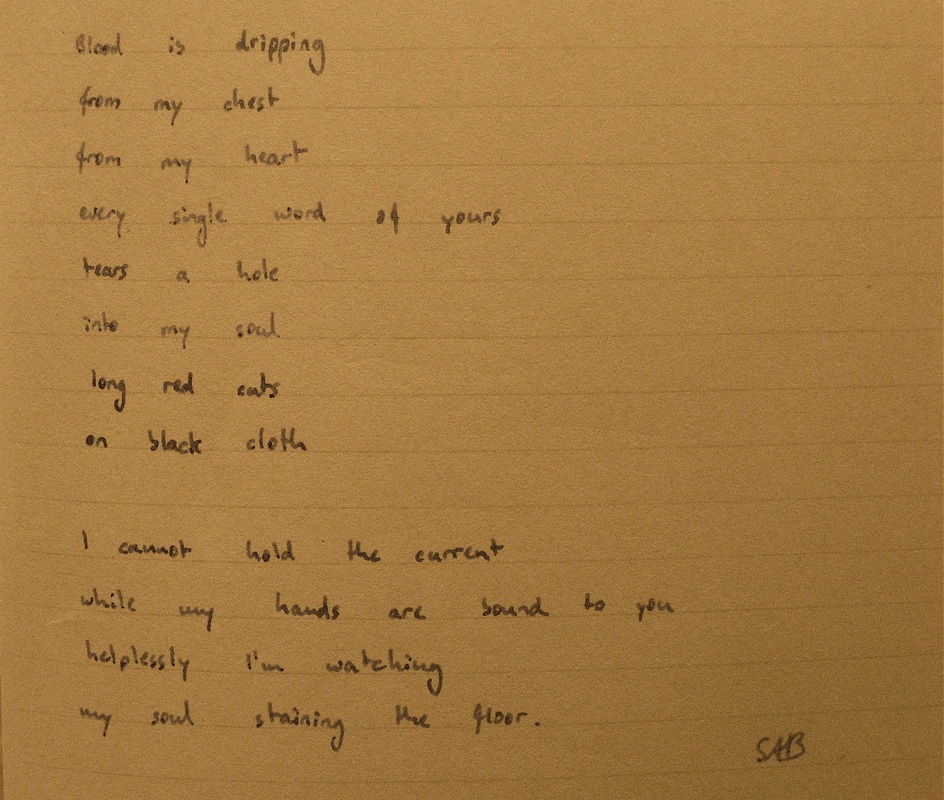 Blood is dripping
from my chest
from my heart
every single word of yours
tears a hole
into my soul
long red cuts
on black cloth
I cannot hold the current
while my hands are bound to you
helplessly I'm watching
my soul staining the floor.
SHB